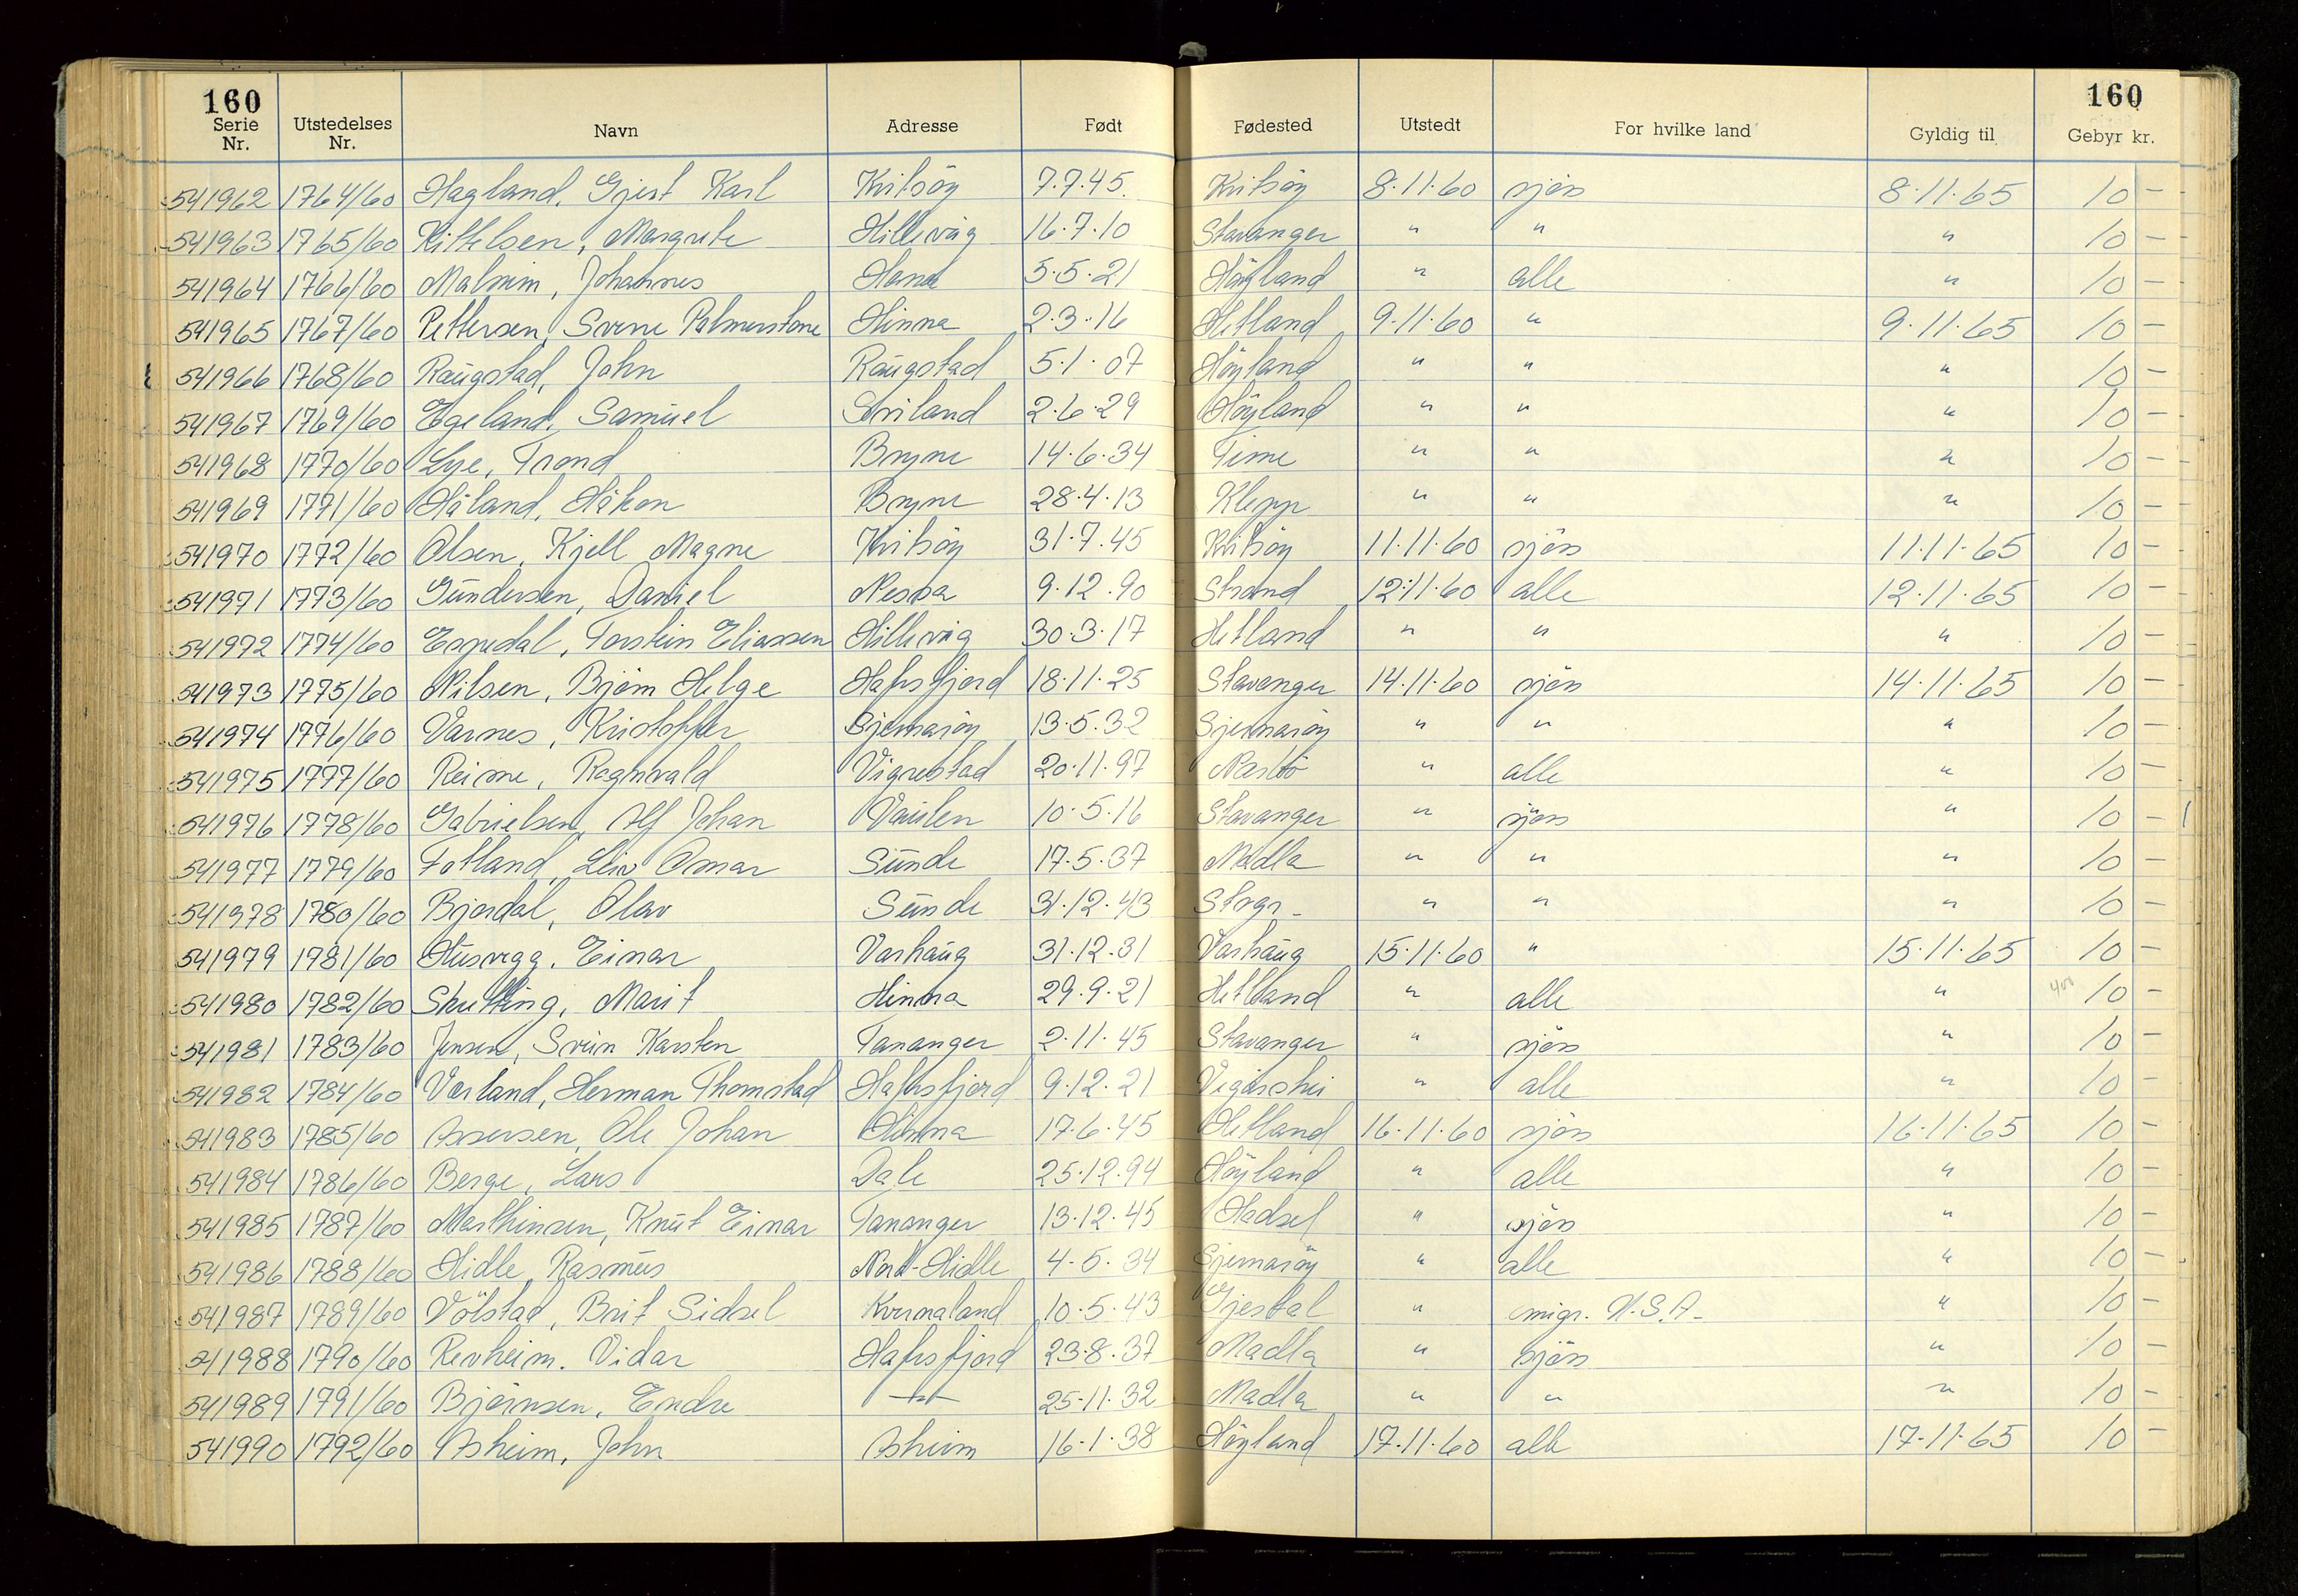 160 160
Serie Nr. Utstedelses Nr. Navn Adresse Født Fødested Utstedt For hvilke land Gyldig til Gebyr kr.
541962 1764/60 Hagland, Gjest Karl Kvitsöy 7.7.45. Kvitsöy 8.11.60 sjöss 8.11.65 10 –
541963 1765/60 Kittelsen, Margrete Hillevåg 16.7.10 Stavanger " " " 10 –
541964 1766/60 Malmin, Johannes Hana 5.5.21 Höyland " alle " 10 –
541965 1767/60 Pettersen, Sverre Palmerstone Hinna 2.3.16 Hetland 9.11.60 " 9.11.65 10 –
541966 1768/60 Raugstad, John Raugstad 5.1.07 Höyland " " " 10 –
541967 1769/60 Egeland, Samuel Sviland 2.6.29 Höyland " " " 10 –
541968 1770/60 Lye, Trond Bryne 14.6.34 Time " " " 10 –
541969 1771/60 Håland, Håkon Bryne 28.4.13 Klepp " " " 10 –
541970 1772/60 Olsen, Kjell Magne Kvitsöy 31.7.45 Kvitsöy 11.11.60 sjöss 11.11.65 10 –
541971 1773/60 Gundersen, Daniel Nessa 9.12.90 Strand 12.11.60 alle 12.11.65 10 –
541972 1774/60 Espedal, Torstein Eliassen Hillevåg 30.3.17 Hetland " " " 10 –
541973 1775/60 Nilsen, Björn Helge Hafrsfjord 18.11.25 Stavanger 14.11.60 sjöss 14.11.65 10 –
541974 1776/60 Varnes, Kristoffer Sjernaröy 13.5.32 Sjernaröy " " " 10 –
541975 1777/60 Reime, Ragnvald Vigrestad 20.11.97 Nærbö " alle " 10 –
541976 1778/60 Gabrielsen, Alf Johan Vaulen 10.5.16 Stavanger " sjöss " 10 –
541977 1779/60 Fotland, Leiv Omar Sunde 17.5.37 Madla " " " 10 –
541978 1780/60 Bjordal, Olav Sunde 31.12.43 Stvgr. " " " 10 –
541979 1981/60 Husvegg, Einar Varhaug 31.12.31 Varhaug 15.11.60 " 15.11.65 10 –
541980 1782/60 Skretting, Marit Hinna 29.9.21 Hetland " alle " 10 –
541981 1783/60 Jensen, Svein Karsten Tananger 2.11.45 Stavanger " sjöss " 10 –
541982 1784/60 Værland, Herman Thomstad Hafrsfjord 9.12.21 Vegårshei " alle " 10 –
541983 1785/60 Assersen, Ole Johan Hinna 17.6.45 Hetland 16.11.60 sjöss 16.11.65 10 –
541984 1786/60 Berge, Lars Dale 25.12.94 Höyland " alle " 10 –
541985 1787/60 Marthinsen, Knut Einar Tananger 13.12.45 Hadsel " sjöss " 10 –
541986 1788/60 Hidle, Rasmus Nord-Hidle 4.5.34 Sjernaröy " alle " 10 –
541987 1789/60 Völstad, Brit Sidsel Kvernaland 10.5.43 Gjestal " emigr. U.S.A. " 10 –
541988 1790/60 Revheim, Vidar Hafrsfjord 23.8.37 Madla " sjöss " 10 –
541989 1791/60 Björnsen, Endre —"— 25.11.32 Madla " " " 10 –
541990 1792/60 Asheim, John Asheim 16.1.38 Höyland 17.11.60 alle 17.11.65 10 –